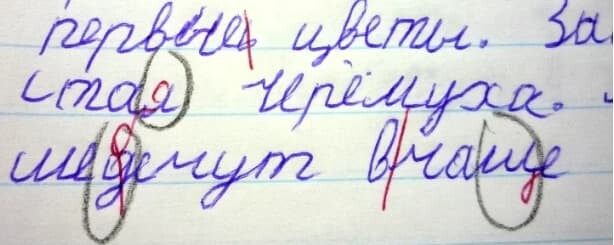 первые цветы. За
стая черёмуха.
щебечут в чаще